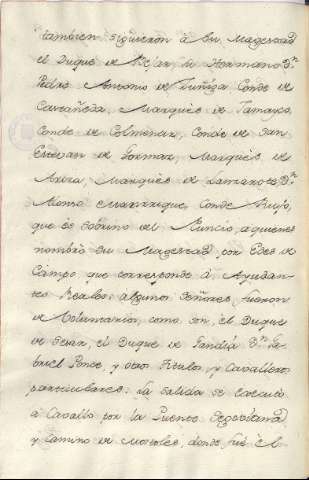 tambien siguieron à Su Magestad
el Duque de Bejar, su Hermano Dn
Pedro Antonio de Zuñiga Conde de
Castañeda, Marquès de Tamayo,
Conde de Colmenar, Conde de San
Estevan de Gormaz, Marquès de
Mirra, Marquès de Lanzarote, Dn
Alonso Manrrique, Conde Rufo,
que es Sobrino del Nuncio, a quienes
nombrò Su Magestad por Edes de
Campo que corresponde à Ayudan
tes Reales: algunos Señores fueron
de Volumtarios, como son el Duque
de Sesar, el Duque de Gandìa Dn Ga
briel Ponce y otros Titulos, y Cavalleros
particulares: la Salida se executò
à Cavallo por la Puente Segoviana
y Camino de Mostoles, donde fuè el